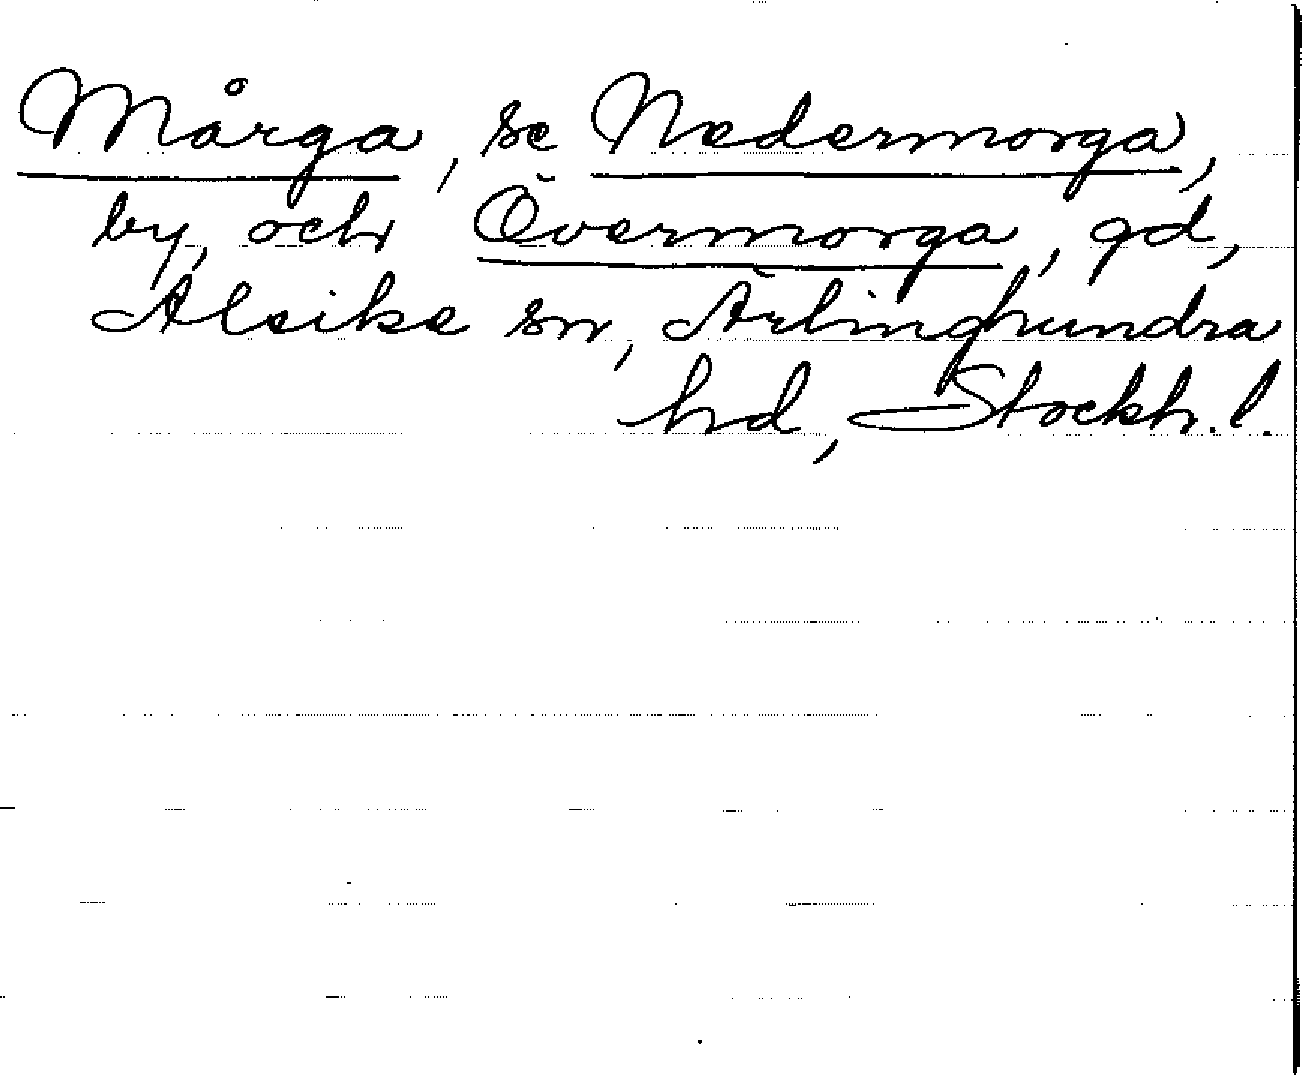 Mårga, se Nedermorga,
by, och Övermorga, gd,
Alsike sn, Ärlinghundra
hd, Stockh. l.